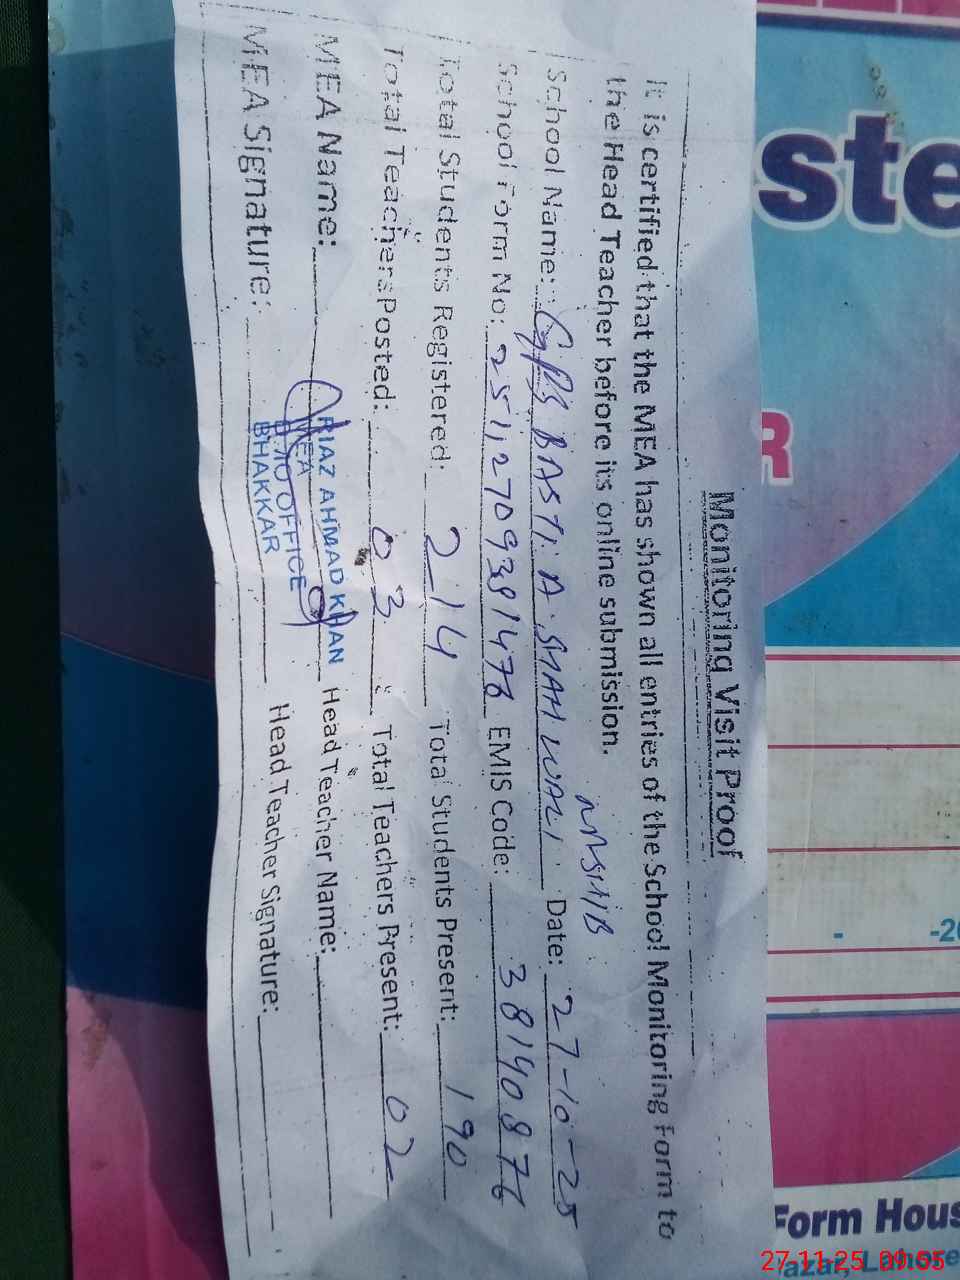 Monitoring Visit Proof
It is certified that the MEA has shown all entries of the School Monitoring Form to
the Head Teacher before its online submission.
School Name: GPS BASTI A. SHAH WALI Date: 27-10-25
School Form No: EMIS Code: 38140876
Total Students Registered: 214 Total Students Present: 190
Total Teachers Posted: 03 Total Teachers Present: 02
MEA Name: Head Teacher Name:
MEA Signature: Head Teacher Signature:
RIAZ AHMAD KHAN
MEA
OFFICE
BHAKKAR
ste
R
- -20
Form Hous
azar, Lahore
27.11.25 09:55